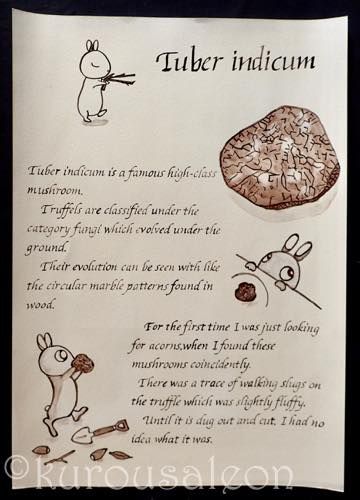 Tuber indicum
Tuber indicum is a famous high-class
mushroom.
Truffels are classified under the
category fungi which evolved under the
ground.
Their evolution can be seen with like
the circular marble patterns found in
wood.
For the first time I was just looking
for acorns,when I found these
mushrooms coincidently.
There was a trace of walking slugs on
the truffle which was slightly fluffy.
Until it is dug out and cut, I had no
idea what it was.
©kurousaleon